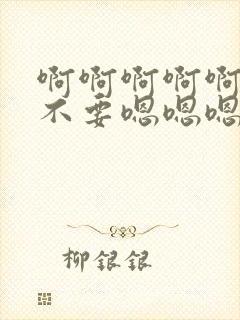 啊啊啊啊啊
不要嗯嗯嗯
柳银银